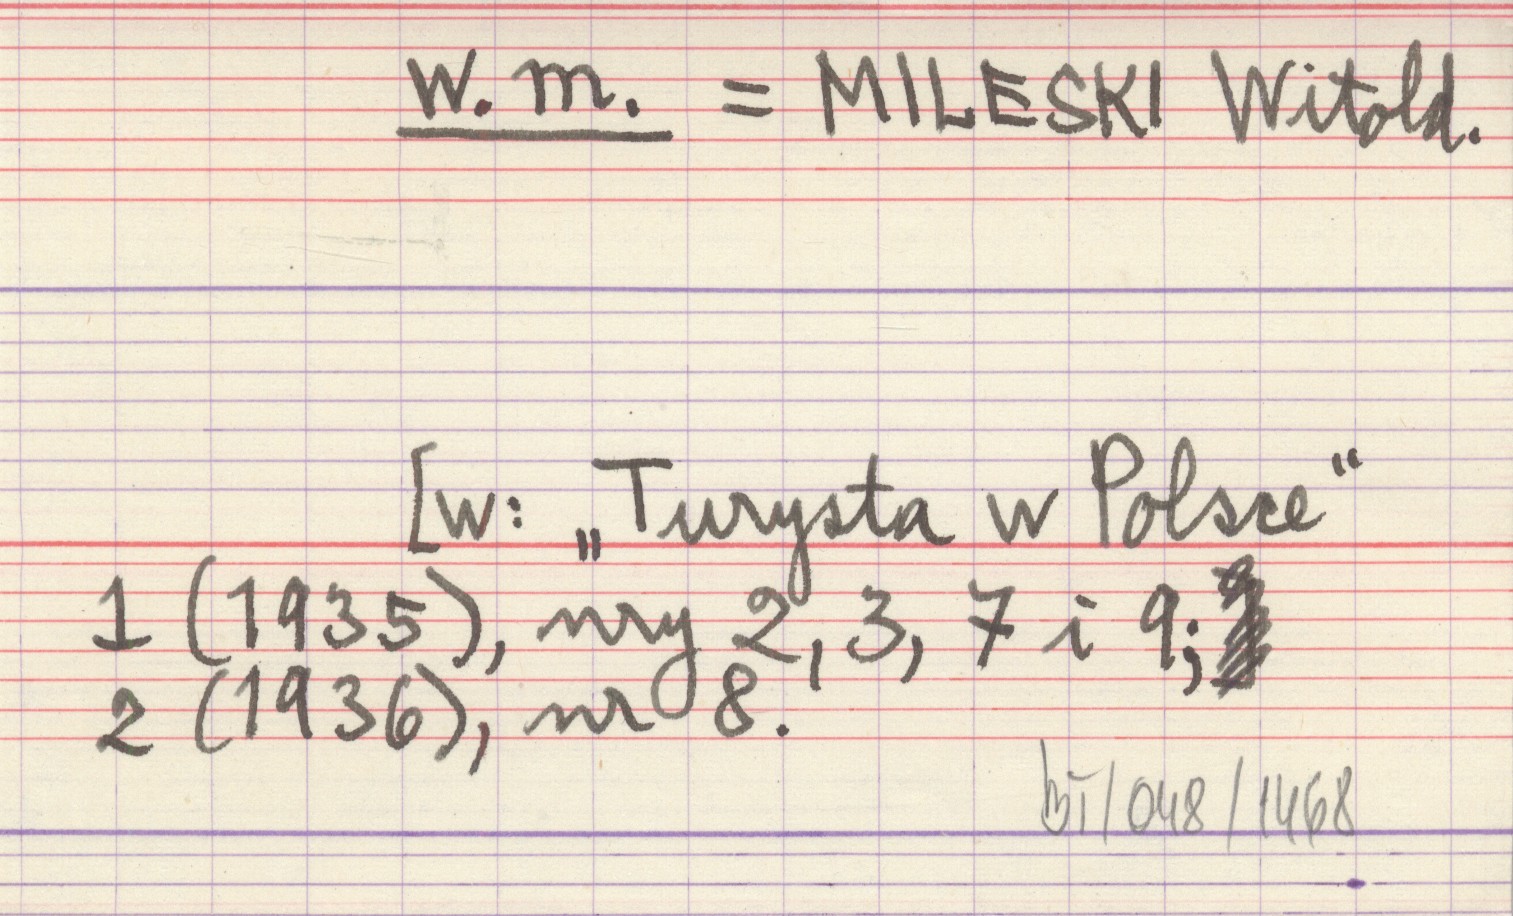 w. m. = MILESKI Witold.
[w: „Turysta w Polsce“
1 (1935), nry 2, 3, 7 i 9;
2 (1936), nr 8.
bT/048/1468